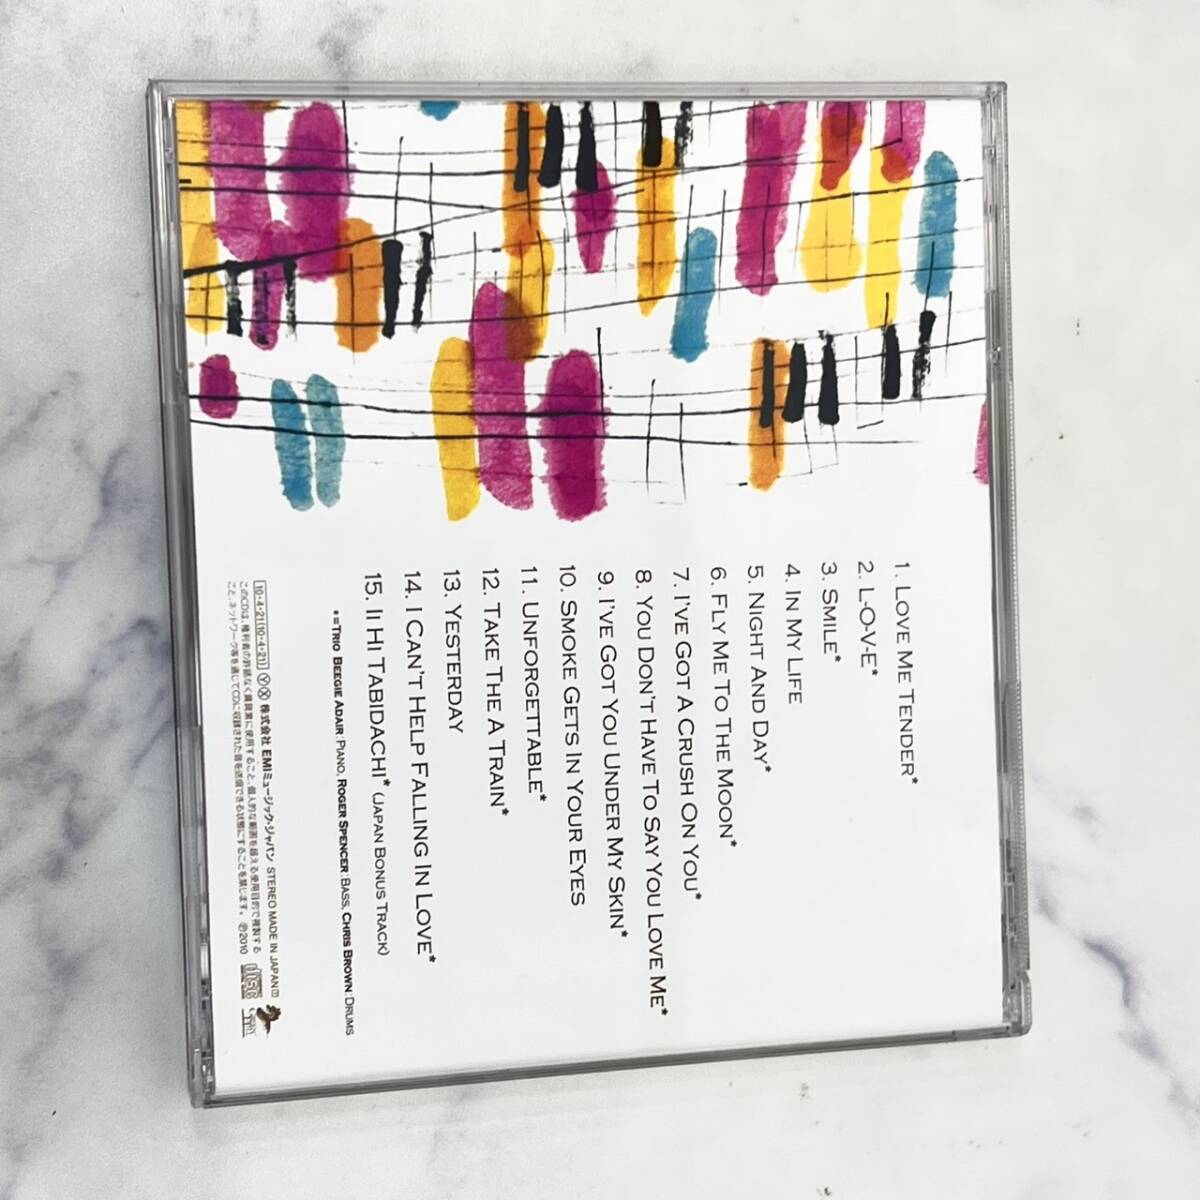 1. LOVE ME TENDER*
2. L-O-V-E*
3. SMILE*
4. IN MY LIFE
5. NIGHT AND DAY*
6. FLY ME TO THE MOON*
7. I'VE GOT A CRUSH ON YOU*
8. YOU DON'T HAVE TO SAY YOU LOVE ME*
9. I'VE GOT YOU UNDER MY SKIN*
10. SMOKE GETS IN YOUR EYES
11. UNFORGETTABLE*
12. TAKE THE A TRAIN*
13. YESTERDAY
14. I CAN'T HELP FALLING IN LOVE*
15. II HI TABIDACHI* (JAPAN BONUS TRACK)
*=TRIO BEEGIE ADAIR:PIANO, ROGER SPENCER:BASS, CHRIS BROWN:DRUMS
10・4・21(10・4・21) Ⓨ Ⓧ 株式会社 EMIミュージック・ジャパン STEREO MADE IN JAPAN
このCDは、権利者の許諾なく賃貸業に使用すること、個人的な範囲を超える使用目的で複製する
こと、ネットワーク等を通じてCDに収録された音を送信できる状態にすることを禁じます。 ℗2010